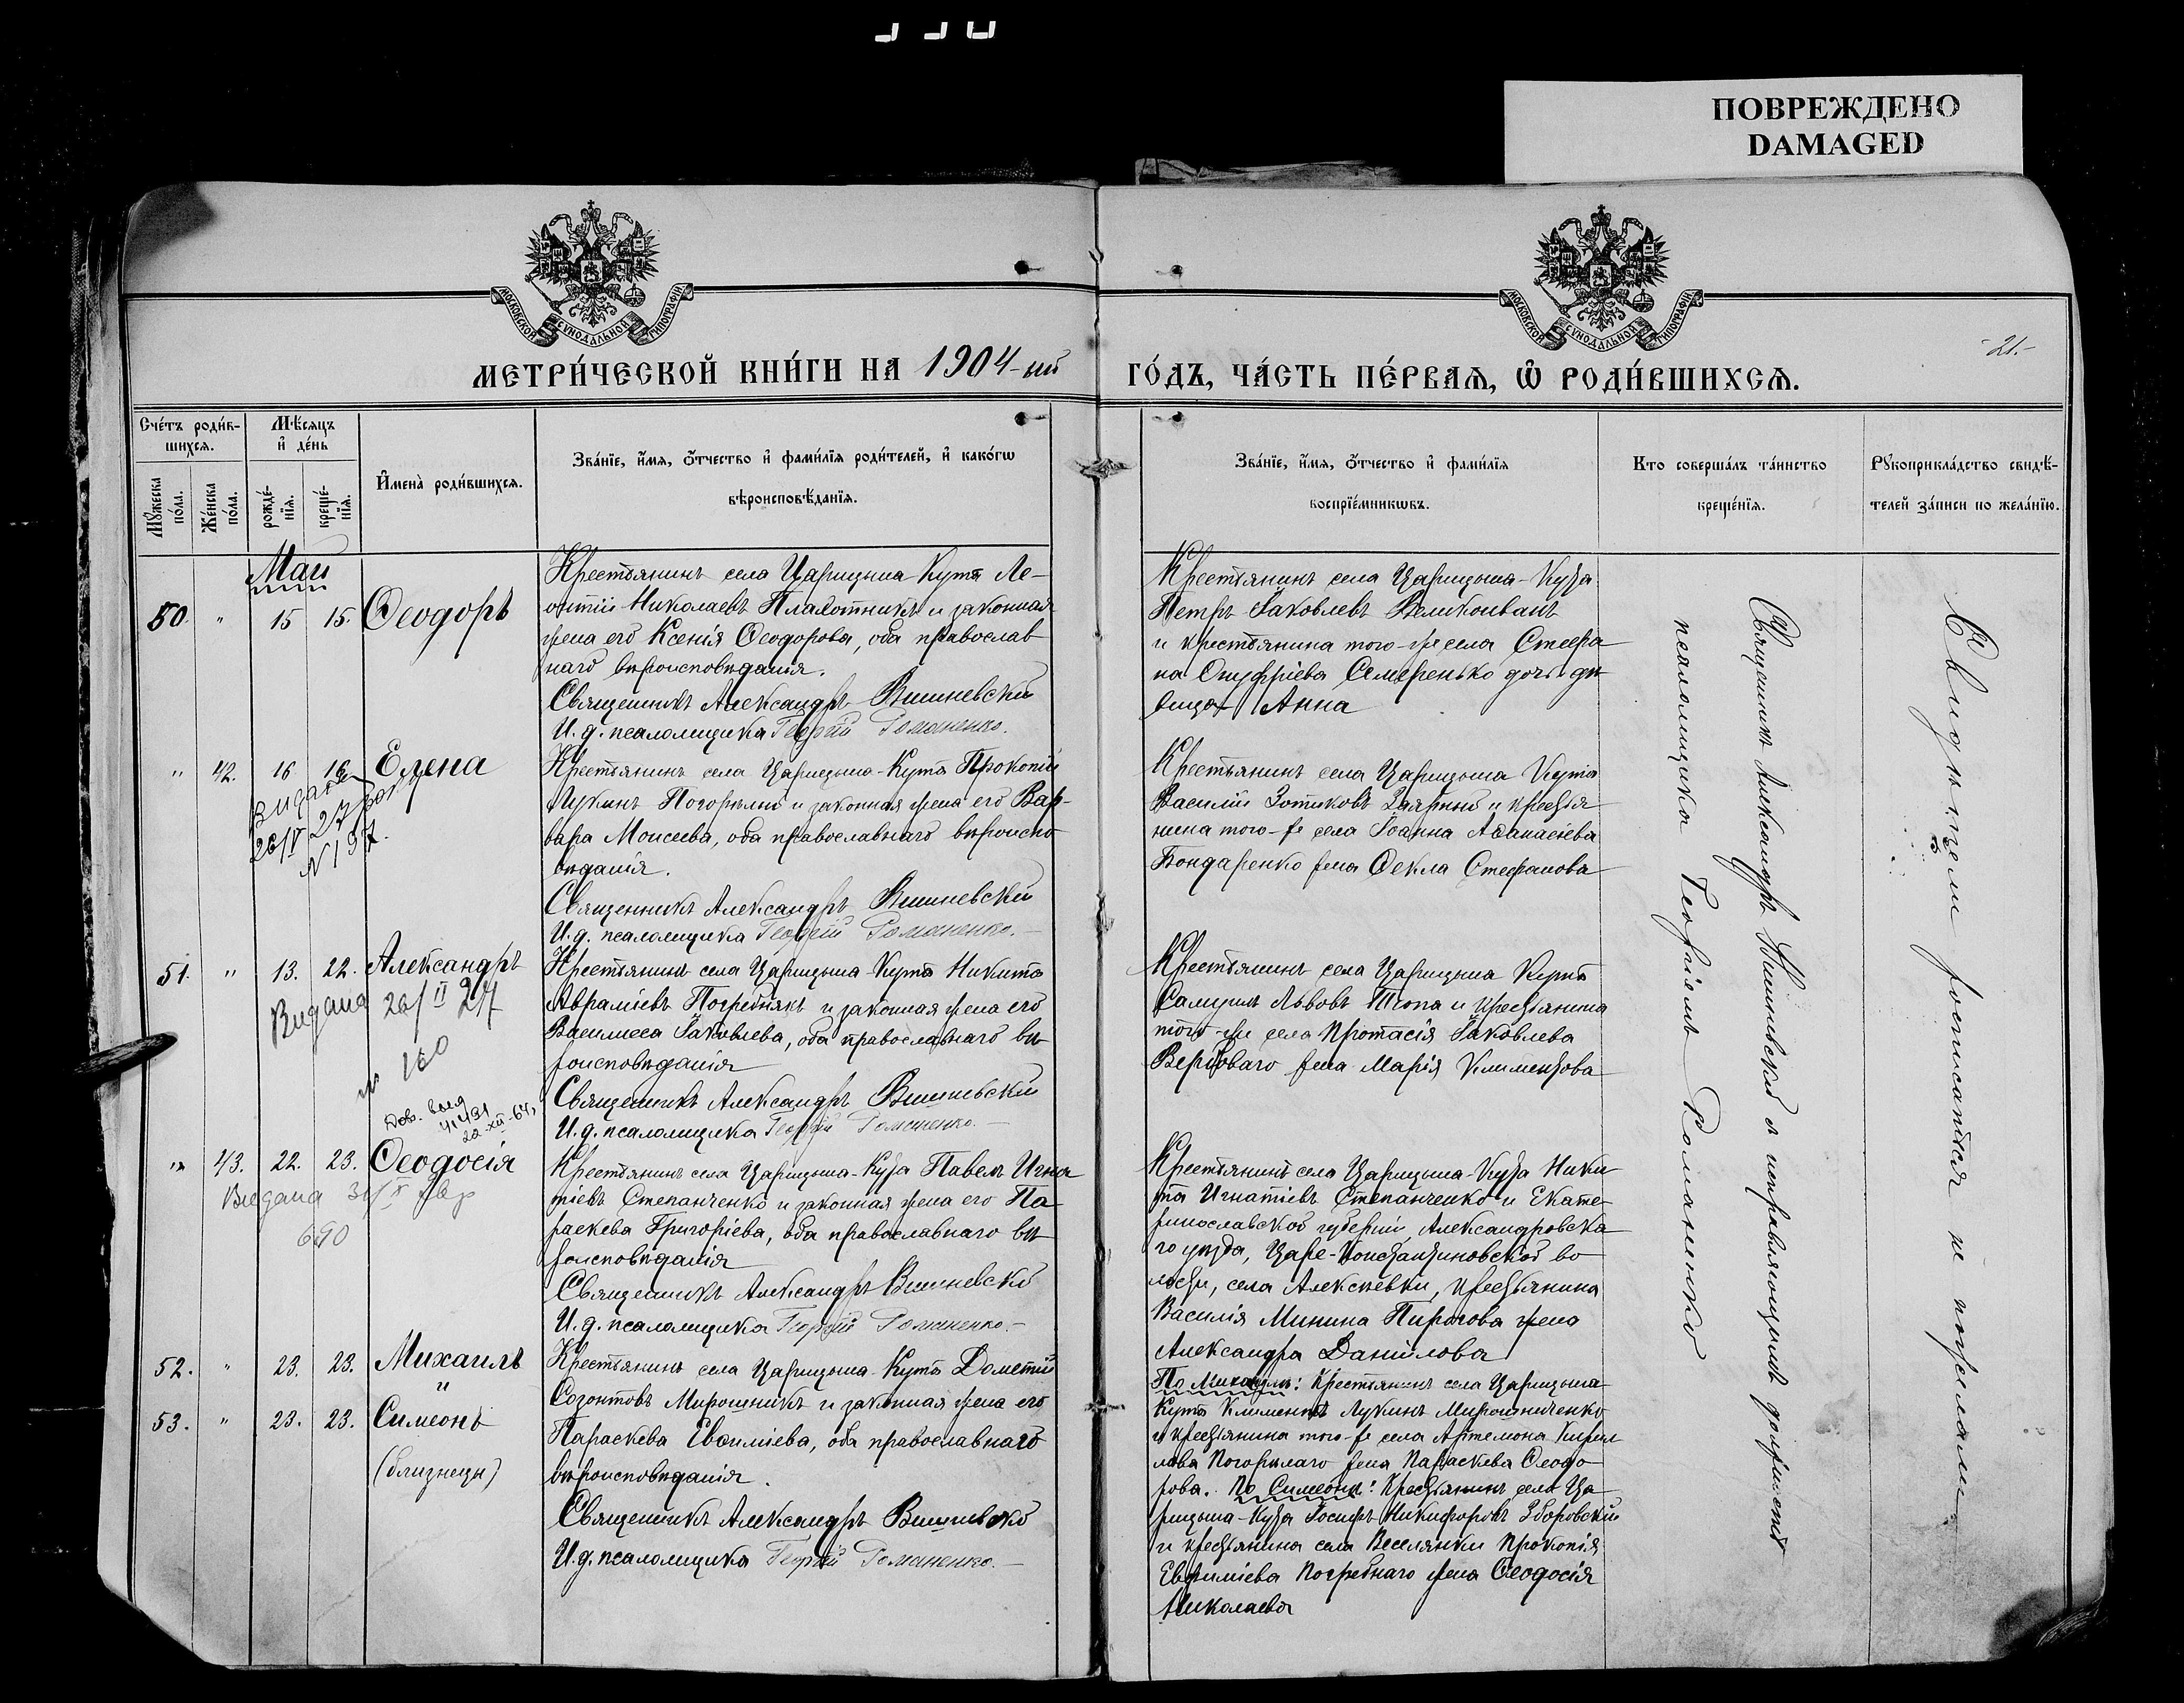 ПОВРЕЖДЕНО
DAMAGED
МОСКОВСКОЙ СѴНОДАЛЬНОЙ ТИПОГРАФІИ
МОСКОВСКОЙ СѴНОДАЛЬНОЙ ТИПОГРАФІИ
-21.-
МЕТРИ́ЧЕСКОЙ КНИ́ГИ НА 1904-ый
ГО́ДЪ, ЧА́СТЬ ПЕ́РВАѦ, Ѽ РОДИ́ВШИХСѦ.
Сче́тъ роди́в-
шихсѧ.
Мꙋ́жеска по́ла.
Же́нска по́ла.
Мѣ́сяцъ
и҆ де́нь
рожде́-
нїѧ.
креще́-
нїѧ.
И҆мена̀ роди́вшихсѧ.
Зва́нїе, и҆́мѧ, ѻ҆́тчество и҆ фами́лїѧ роди́телей, и҆ како́гѡ
вѣроисповѣ́данїѧ.
Зва́нїе, и҆́мѧ, ѻ҆́тчество и҆ фами́лїѧ
воспрїе́мникѡвъ.
Кто соверша́лъ та́инство
креще́нїѧ.
Рꙋкоприкла́дство свидѣ́-
телей за́писи по жела́нїю.
Май
50. " 15 15. Ѳеодоръ
Крестьянинъ села Царицына Кута Ле-
онтій Николаевъ Плахотникъ и законная
жена его Ксенія Ѳеодорова, оба православ
наго вѣроисповѣданія.
Священникъ Александръ Вишневскій
И. д. псаломщика Георгій Романенко.
Крестьянинъ села Царицына-Кута
Петръ Іаковлевъ Великоиванъ
и крестьянина того-же села Стефа
на Онуфріева Семеренько дочь дѣ
вица Анна
" 42. 16 16 Елена
Видана
26/IV 27 року
N 197.
Крестьянинъ села Царицына-Кута Прокопій
Лукинъ Погорѣлый и законная жена его Вар-
вара Моисеева, оба православнаго вѣроиспо
вѣданія.
Священникъ Александръ Вишневскій
И. д. псаломщика Георгій Романенко.-
Крестьянинъ села Царицына Кута
Василій Зотиковъ Заярный и крестья
нина того-же села Іоанна Аѳанасіева
Бондаренко жена Ѳекла Стефанова
51. " 13. 22. Александръ
Видана 26/II 27
№ 160
Крестьянинъ села Царицына-Кута Никита
Авраміевъ Погребнякъ и законная жена его
Василиса Іаковлева, оба православнаго вѣ
роисповѣданія
Священникъ Александръ Вишневскій
И. д. псаломщика Георгій Романенко.-
Крестьянинъ села Царицына Кута
Самуилъ Львовъ Тюпа и крестьянина
того-же села Протасія Іаковлева
Вербоваго жена Марія Климентова
22-XII-64,
" 43. 22. 23. Ѳеодосія
Видана
690
Крестьянинъ села Царицына-Кута Павелъ Игна
тіевъ Степанченко и законная жена его Па
раскева Григоріева, оба православнаго вѣ
роисповѣданія
Священникъ Александръ Вишневскій
И. д. псаломщика Георгій Романенко.-
Крестьянинъ села Царицына-Кута Ники
та Игнатіевъ Степанченко и Екате-
ринославской губерніи, Александровска
го уѣзда, Царе-Константиновской во
лости, села Алексѣевки, крестьянина
Василія Минина Пирогова жена
Александра Даніилова
52. " 23. 23. Михаилъ
и
53. " 23. 23. Симеонъ
(близнецы)
Крестьянинъ села Царицына-Кута Дометій
Созонтовъ Мирошникъ и законная жена его
Параскева Евѳиміева, оба православнаго
вѣроисповѣданія.
Священникъ Александръ Вишневскій
И. д. псаломщика Георгій Романенко.-
По Михаилѣ: Крестьянинъ села Царицына
Кута Климентъ Лукинъ Мирошниченко
и крестьянина того-же села Артемона Кирил
лова Погорѣлаго жена Параскева Ѳеодо
рова. По Симеонѣ: Крестьянинъ села Ца
рицына-Кута Іосифъ Никифоровъ Зборовскій
и крестьянина села Веселянки Прокопія
Евфиміева Погребнаго жена Ѳеодосія
Николаева
Священникъ Александръ Вишневскій и исправляющимъ должность
псаломщика Георгіемъ Романенко
Свидѣтели росписаться не пожелали